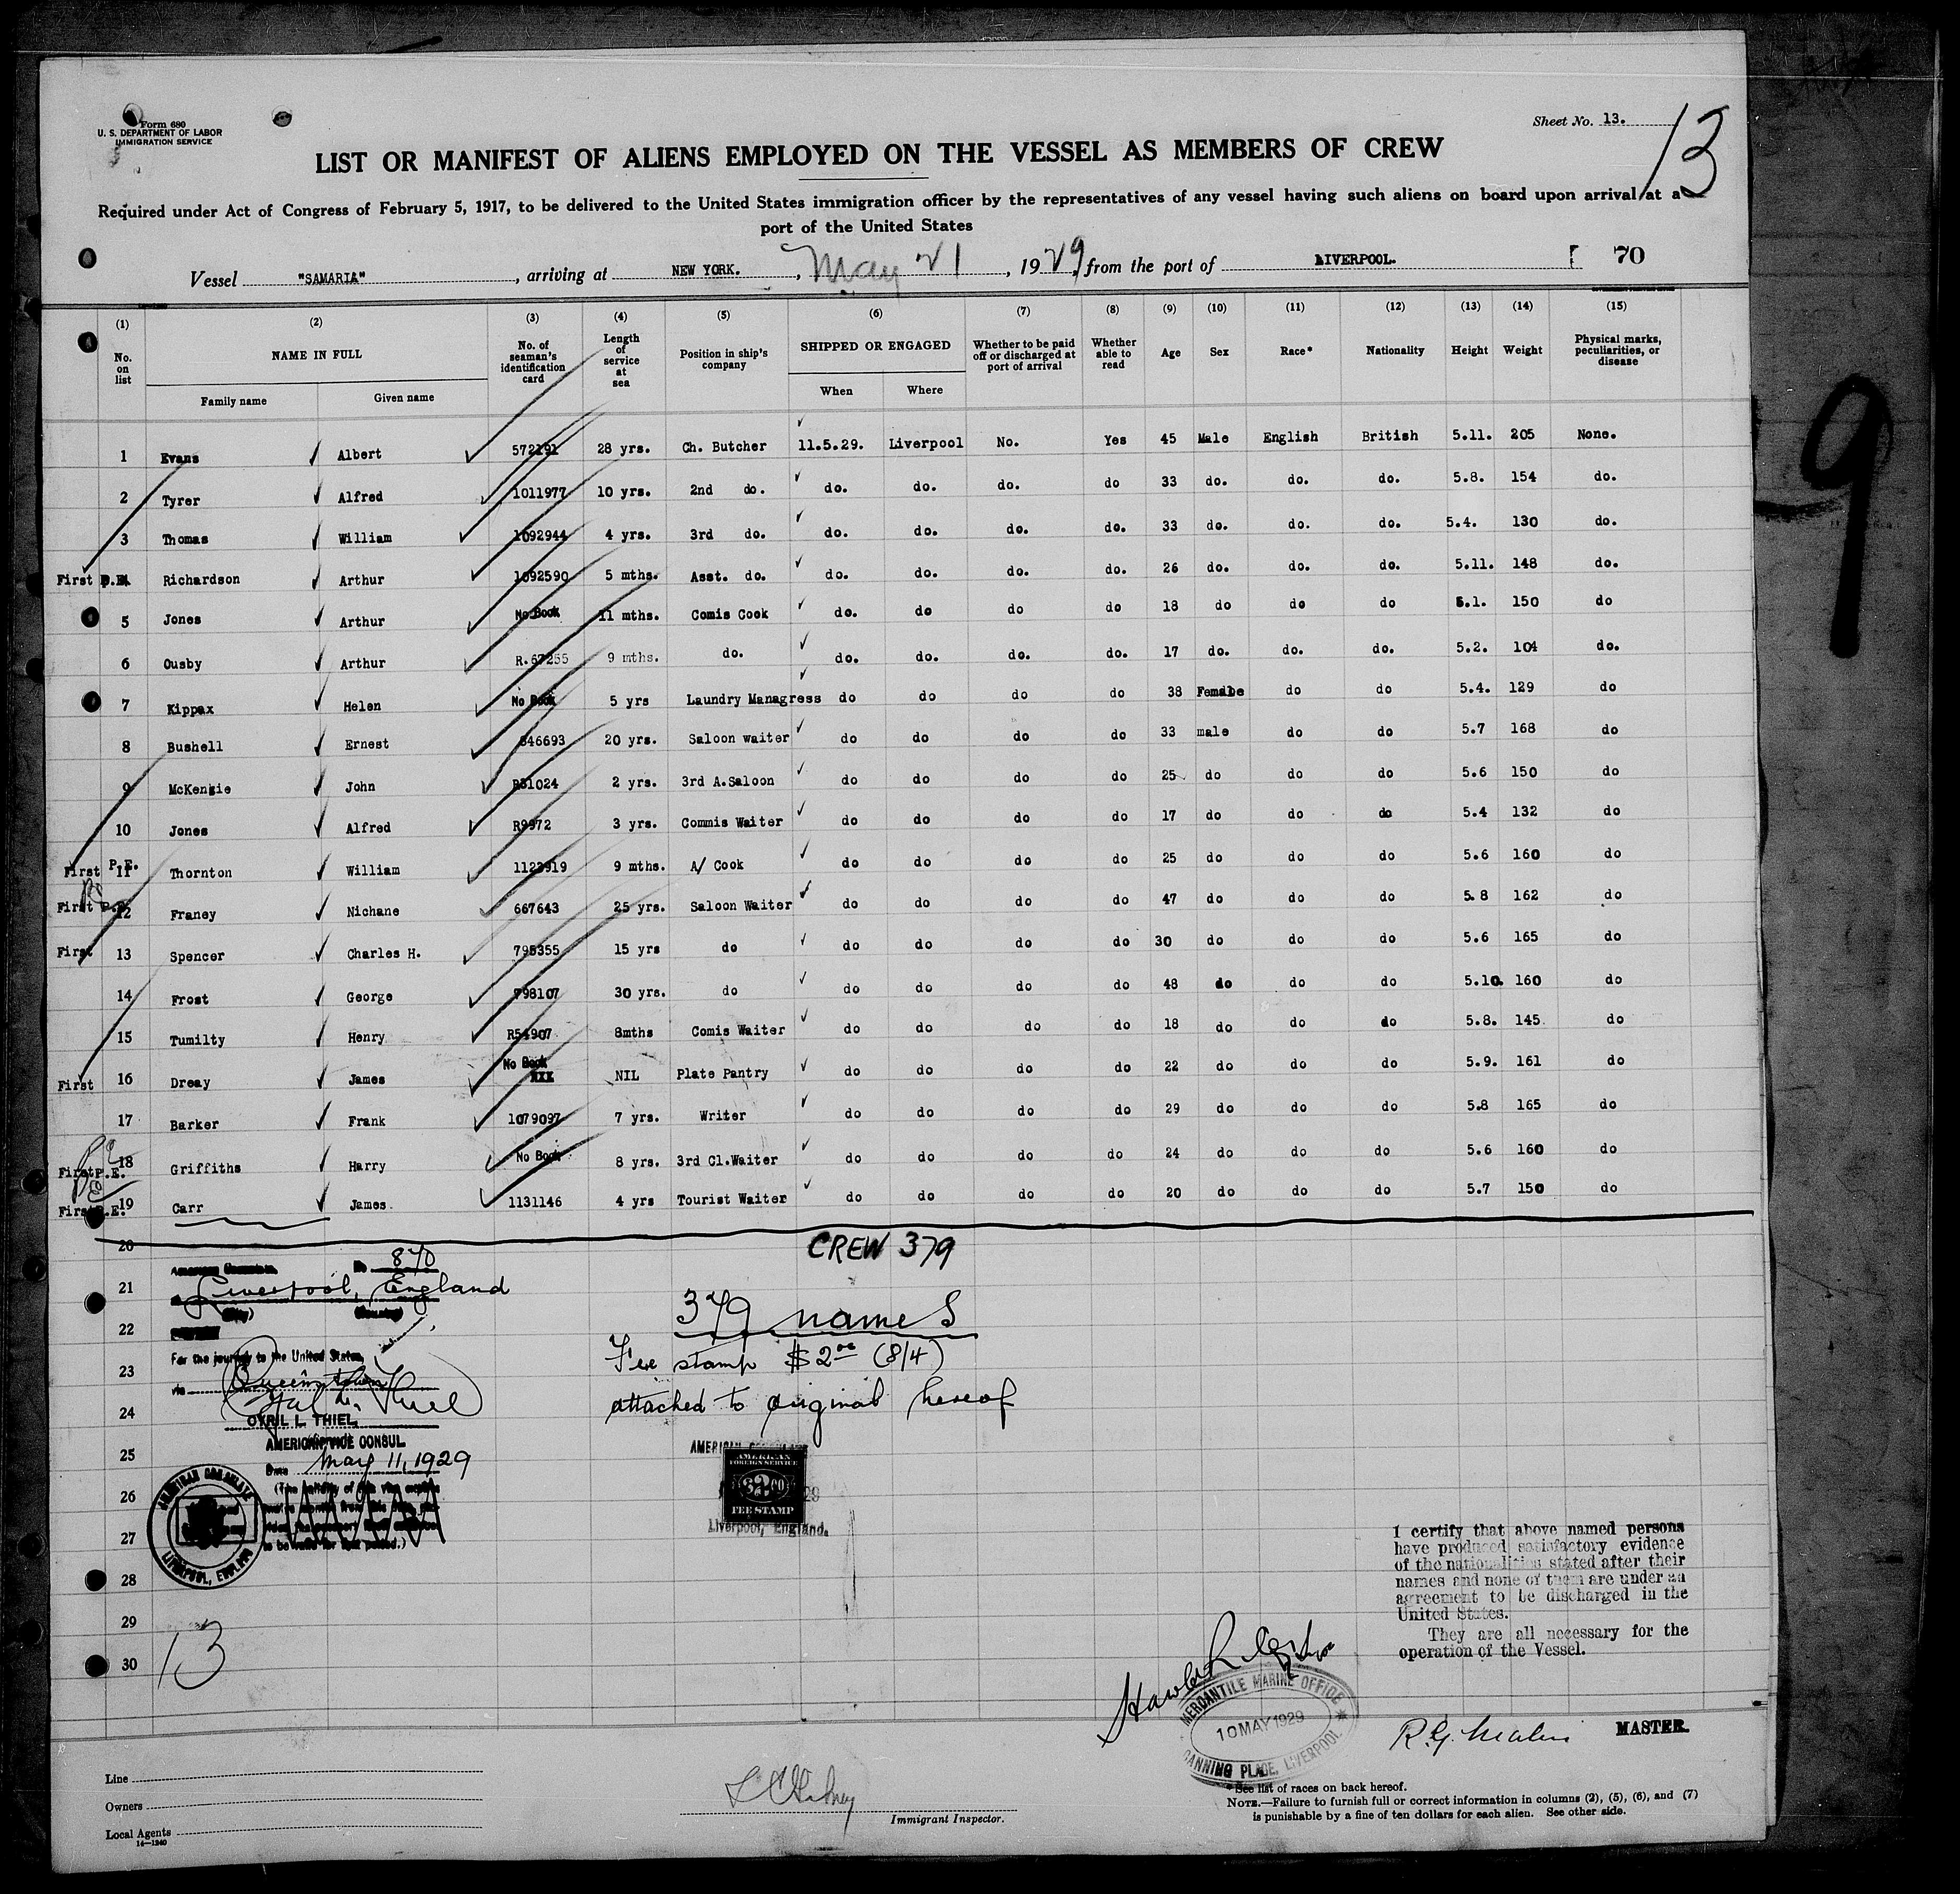 Form 680
U. S. DEPARTMENT OF LABOR
IMMIGRATION SERVICE
Sheet No. 13.
13
LIST OR MANIFEST OF ALIENS EMPLOYED ON THE VESSEL AS MEMBERS OF CREW
Required under Act of Congress of February 5, 1917, to be delivered to the United States immigration officer by the representatives of any vessel having such aliens on board upon arrival at a
port of the United States
Vessel "SAMARIA", arriving at NEW YORK., May 21, 1929, from the port of LIVERPOOL. 70
(1) (2) (3) (4) (5) (6) (7) (8) (9) (10) (11) (12) (13) (14) (15)
No. on list NAME IN FULL Family name Given name No. of seaman's identification card Length of service at sea Position in ship's company SHIPPED OR ENGAGED When Where Whether to be paid off or discharged at port of arrival Whether able to read Age Sex Race* Nationality Height Weight Physical marks, peculiarities, or disease
1 Evans Albert 572191 28 yrs. Ch. Butcher 11.5.29. Liverpool No. Yes 45 Male English British 5.11. 205 None.
2 Tyrer Alfred 1011977 10 yrs. 2nd do. do. do. do. do 33 do. do. do. 5.8. 154 do.
3 Thomas William 1092944 4 yrs. 3rd do. do. do. do. do. 33 do. do. do. 5.4. 130 do.
First P.E. Richardson Arthur 1092590 5 mths. Asst. do. do. do. do. do. 26 do. do. do. 5.11. 148 do.
5 Jones Arthur No Book 11 mths. Comis Cook do. do do do 18 do do do 5.1. 150 do
6 Ousby Arthur R.67255 9 mths. do. do. do. do. do. 17 do. do. do. 5.2. 104 do.
7 Kippax Helen No Book 5 yrs Laundry Managress do do do do 38 Female do do 5.4. 129 do
8 Bushell Ernest 846693 20 yrs. Saloon waiter do do do do 33 male do do 5.7 168 do
9 McKenzie John R31024 2 yrs. 3rd A.Saloon do do do do 25 do do do 5.6 150 do
10 Jones Alfred R9972 3 yrs. Commis Waiter do do do do 17 do do do 5.4 132 do
First P.E. 11 Thornton William 1123919 9 mths. A/ Cook do do do do 25 do do do 5.6 160 do
First P.E. 12 Franey Nichane 667643 25 yrs. Saloon Waiter do do do do 47 do do do 5.8 162 do
First 13 Spencer Charles H. 795355 15 yrs do do do do do 30 do do do 5.6 165 do
14 Frost George 798107 30 yrs. do do do do do 48 do do do 5.10. 160 do
15 Tumilty Henry R54907 8mths Comis Waiter do do do do 18 do do do 5.8. 145. do
First 16 Dreay James No Book NIL Plate Pantry do do do do 22 do do do 5.9. 161 do
17 Barker Frank 1079097 7 yrs. Writer do do do do 29 do do do 5.8 165 do
First P.E. 18 Griffiths Harry No Book 8 yrs. 3rd Cl.Waiter do do do do 24 do do do 5.6 160 do
First P.E. 19 Carr James. 1131146 4 yrs Tourist Waiter do do do do 20 do do do 5.7 150 do
20
CREW 379
No 870
21
Liverpool, England
(City) (Country)
379 names
22
For the journey to the United States,
Fee stamp $2.00 (8/4)
23
via Queenstown
attached to original hereof
24
CYRIL L. THIEL
AMERICAN VICE CONSUL.
25
Date May 11, 1929
AMERICAN
FOREIGN SERVICE
$2.00
FEE STAMP
Liverpool, England.
26
27
to be valid for that period.)
AMERICAN CONSULATE
LIVERPOOL, ENGLAND
28
29
30
13
I certify that above named persons
have produced satisfactory evidence
of the nationalities stated after their
names and none of them are under an
agreement to be discharged in the
United States.
They are all necessary for the
operation of the Vessel.
MERCANTILE MARINE OFFICE
10 MAY 1929
CANNING PLACE, LIVERPOOL
MASTER.
Line
Owners
Local Agents
14—1240
Immigrant Inspector.
* See list of races on back hereof.
NOTE.—Failure to furnish full or correct information in columns (2), (5), (6), and (7)
is punishable by a fine of ten dollars for each alien. See other side.
9